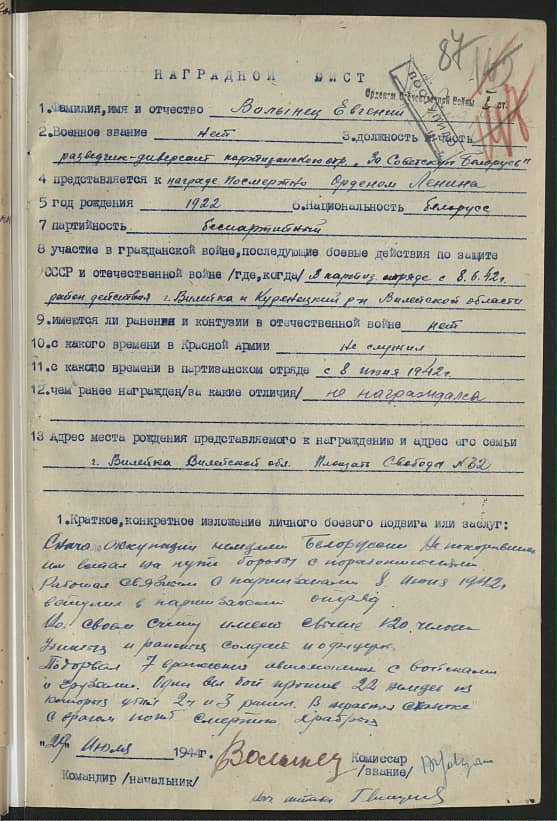 87
НАГРАДНОЙ ЛИСТ
Орденом Отечественной Войны I ст.
1. Фамилия, имя и отчество Волынец Евгений
2. Военное звание нет 3. должность и часть
разведчик-диверсант партизанского отр. "За Советскую Белорусь"
4 представляется к награде Посмертно Орденом Ленина
5 год рождения 1922 6. Национальность белорусс
7 партийность беспартийный
8 участие в гражданской войне, последующие боевые действия по защите
СССР и отечественной войне /где, когда/ В партиз. отряде с 8.6.42г.
район действия г. Вилейка и Куренецкий р-н Вилейской области
9. имеются ли ранения и контузии в отечественной войне нет
10. с какого времени в Красной Армии Не служил
11. с какого времени в партизанском отряде с 8 июня 1942г.
12. чем ранее награжден/за какие отличия/ не награждался
13 Адрес места рождения представляемого к награждению и адрес его семьи
г. Вилейка Вилейской обл. Площать Свободы №32
1. Краткое, конкретное изложение личного боевого подвига или заслуг:
оккупации немцами Белоруссии Не покорившись
им встал на путь борьбы с поработителями
Работая связным с партизанами 8 Июня 1942г
вступил в партизанский отряд
На своем счету имеет свыше 120 человек
убитых и раненых солдат и офицеров.
Подорвал 7 вражеских автомашин с войсками
и грузами. Один вел бой против 22 немцев из
которых убил 2х и 3 ранил. В неравной схватке
с врагом погиб смертью храбрых
"29" Июля 1944г. Волынец Комиссар
Командир /начальник/ /звание/
Нач штаба